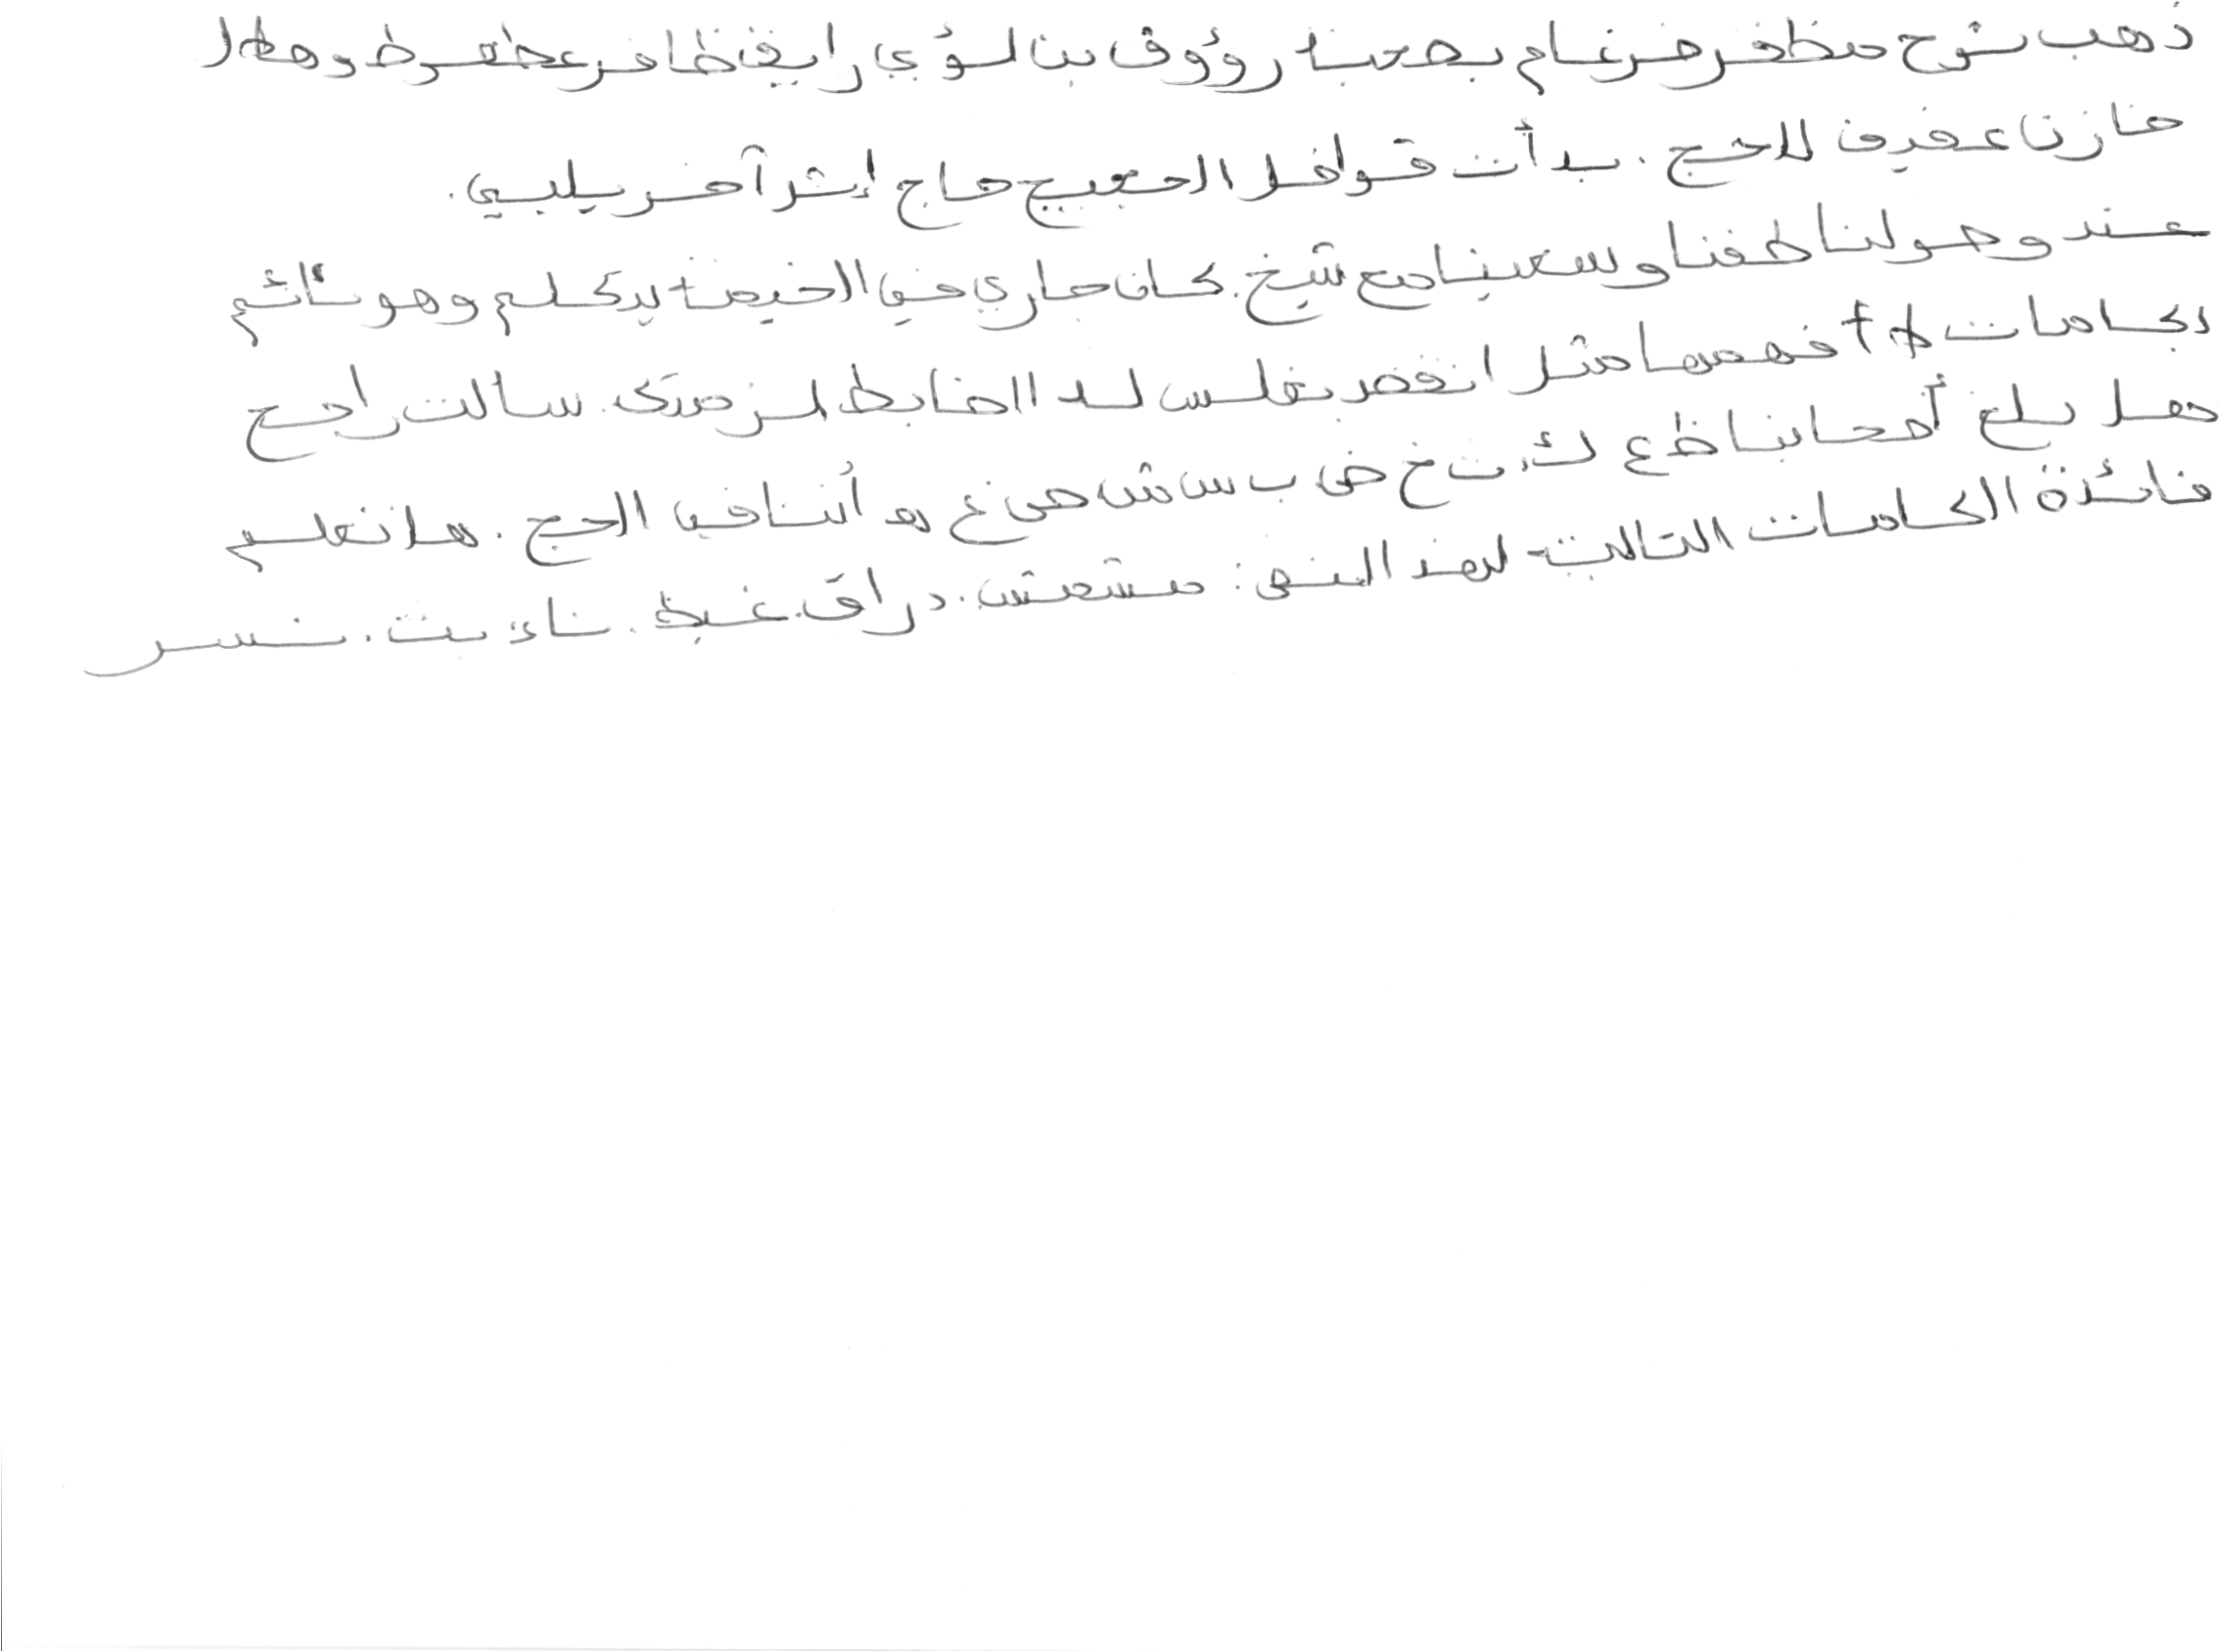 ذهب نوح مظفر ضرغام بصحبة رؤوف بن لؤي رايق ظافر عطعوط وهلال
خازن عفيف للحج. بدأت قوافل الحجيج حاج إثر آخر يلبي.
عند وصولنا طفنا وسعينا مع شيخ. كان جاري في الخيمة يتكلم وهو نائم
بكلمات لا أفهمها مثل انقض بغلس لدا الضابط لزمتك. سألت راجح
هل بلغ أصحابنا ظ ع ك ث خ ض ب س ش ص غ هـ أننا في الحج. هلا نعلم
فائدة الكلمات التالية لهذ النص: مشمش. دراق. غيظ. ناء بث. نسر